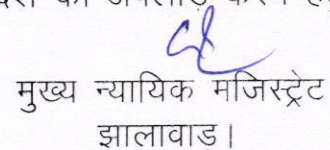 मुख्य न्यायिक मजिस्ट्रेट
झालावाड।